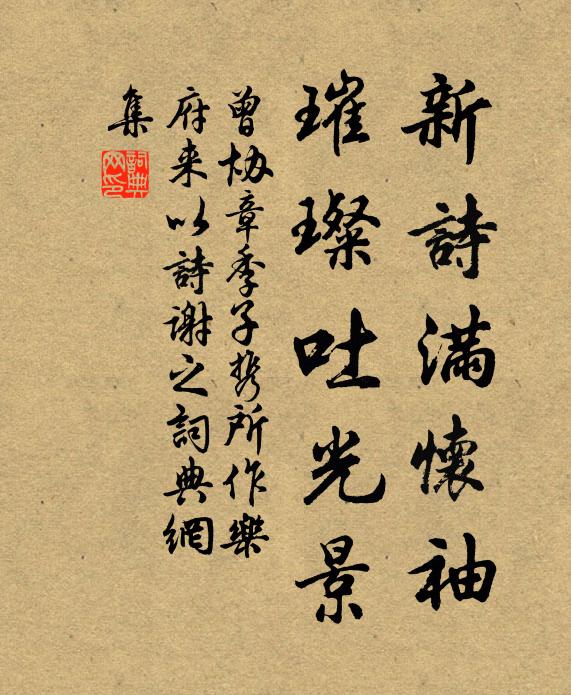 新詩滿懷袖
璀璨吐光景
曾協章季子攜所作樂
府来以詩謝之詞典網
集
詞典網印